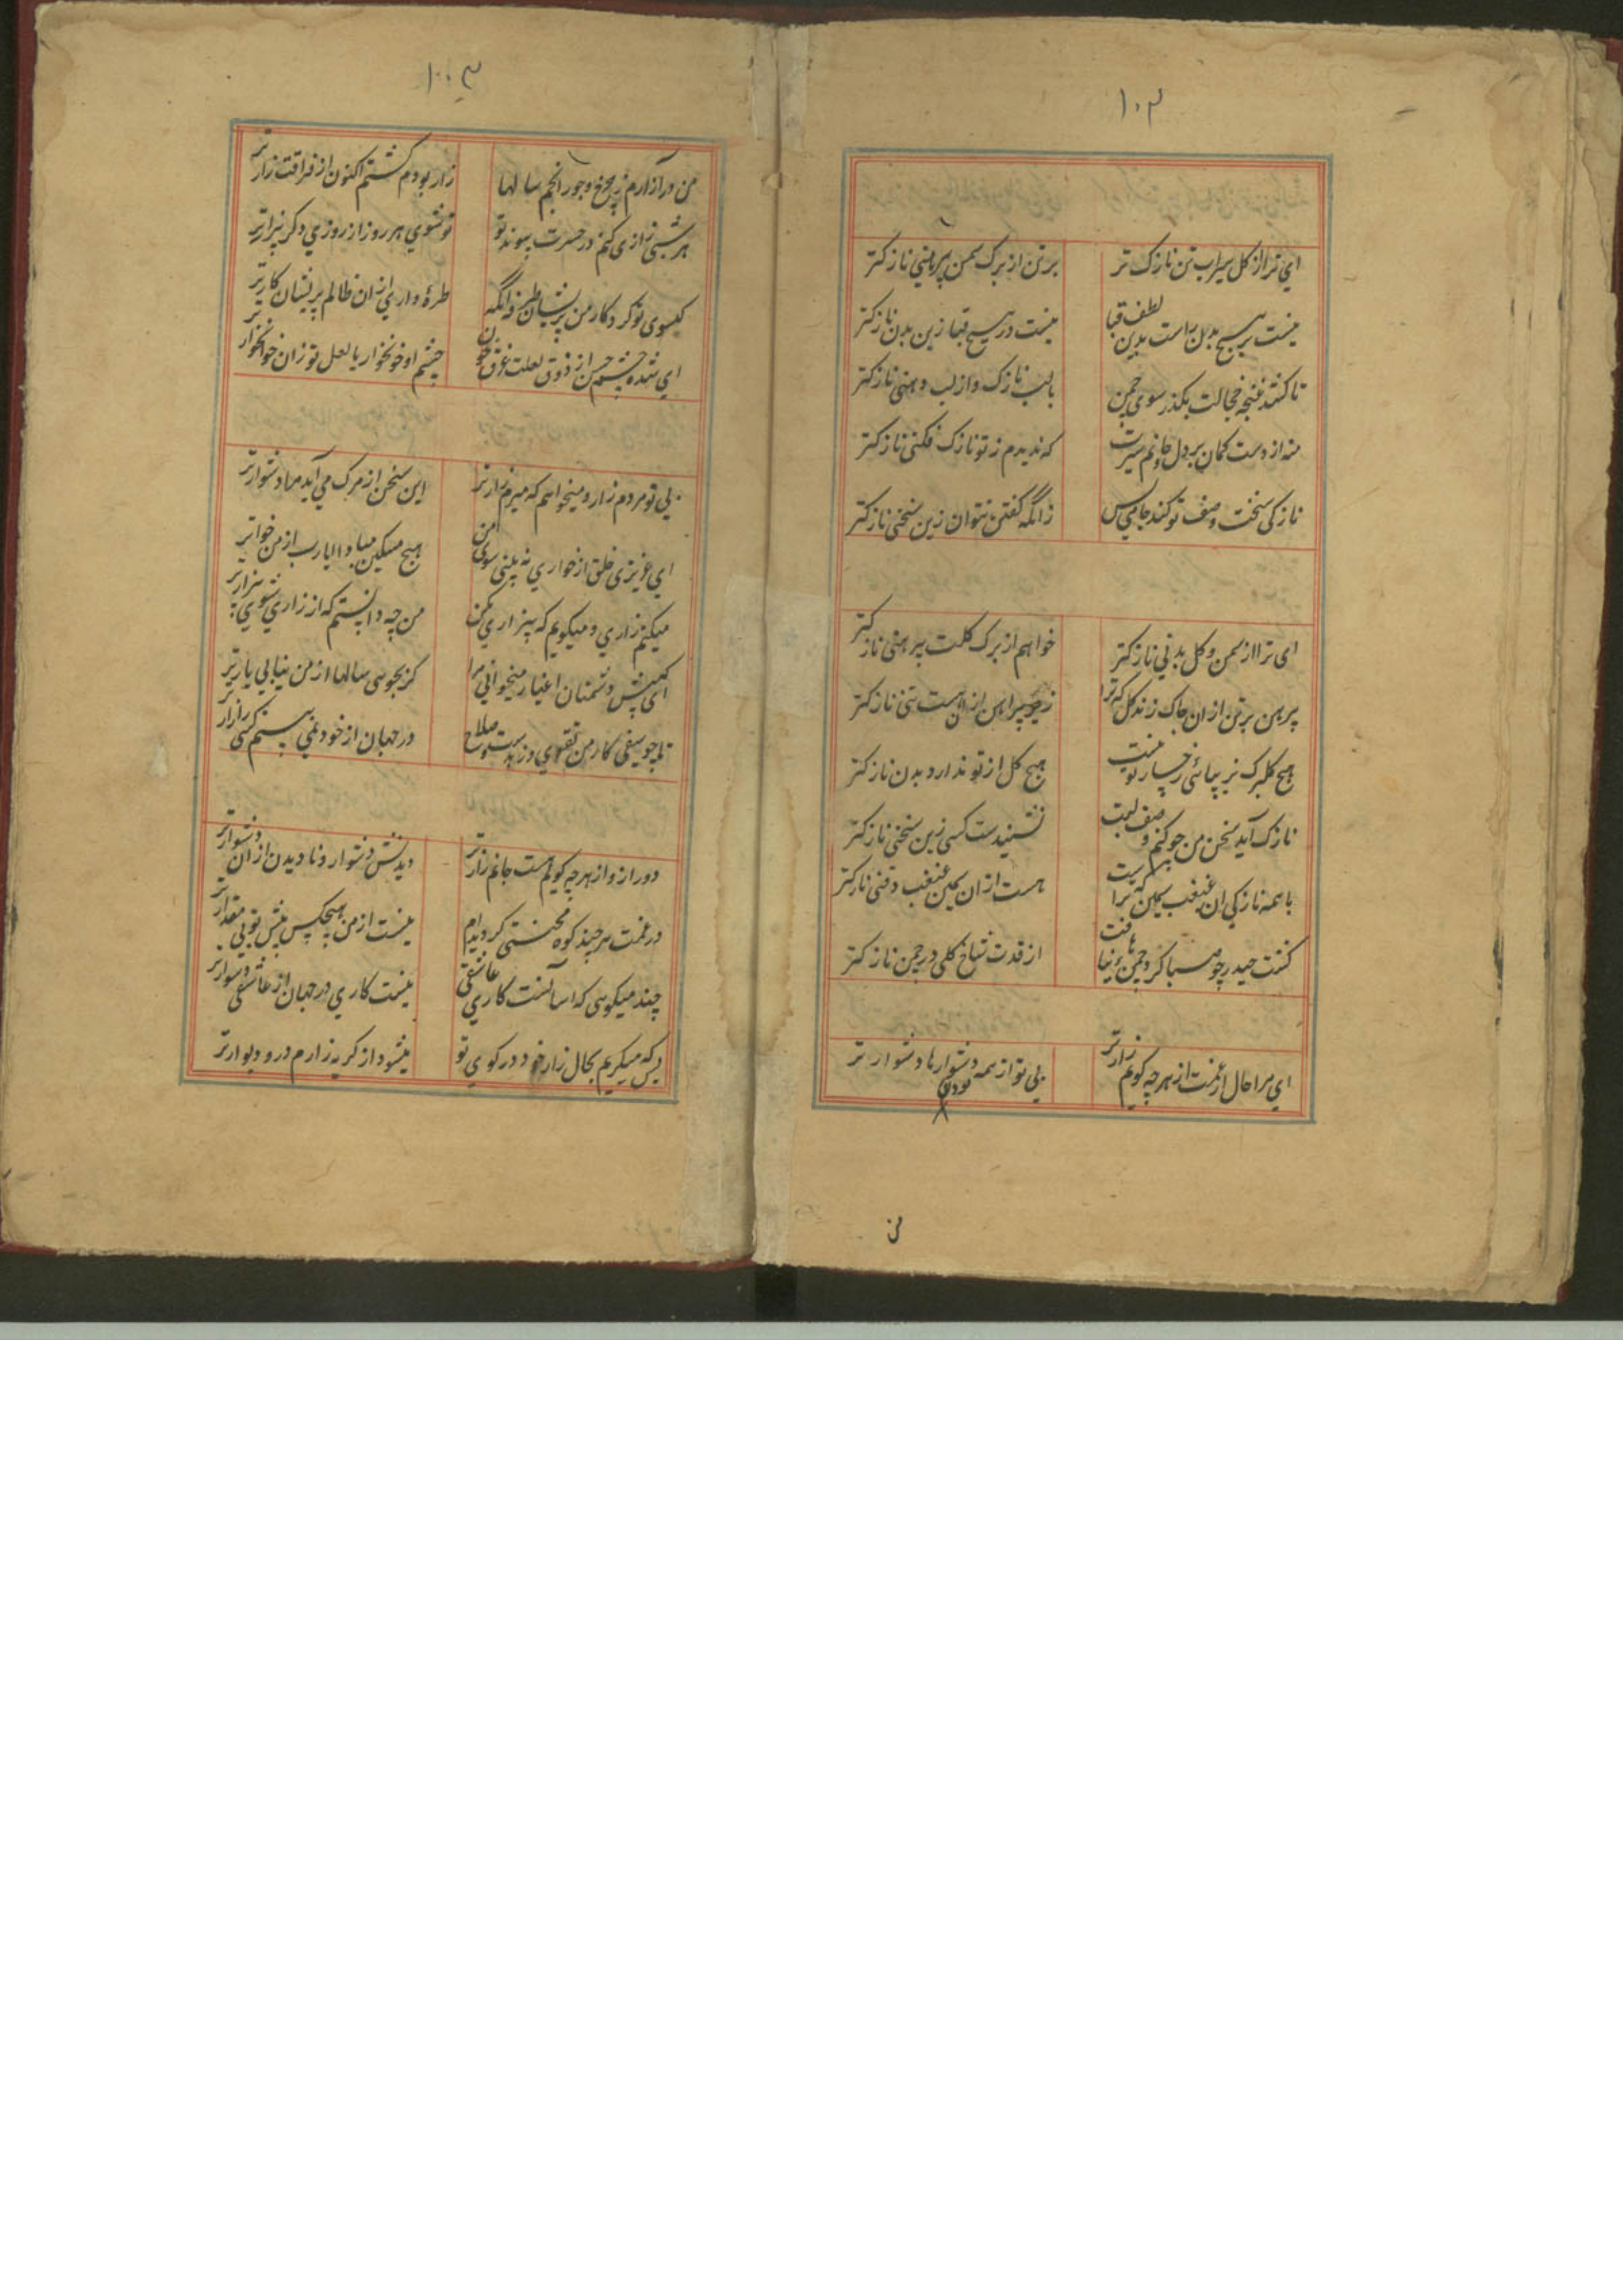 ۱۰۲
ای ترا از کل سیراب تن نازک تر
بر تن از برک سمن پیرهنی نازکتر
نیست بر هیچ بدن راست بدین لطف قبا
نیست در هیچ قبا زین بدن نازکتر
تا کشد غنچه خجالت بکذر سوی چمن
بالب نازک و از لب دهنی نازکتر
منه از دست کمان بر دل و جانم تیرت
که ندیدم ز تو نازک فکنی نازکتر
نازکی سخت وصف تو کند جامی بس
زانکه کفتن نتوان زین سخنی نازکتر
ای ترا از سمن و کل بدنی نازکتر
خواهم از برک کلت پیرهنی نازکتر
پرهن بر تن ازان چاک زند کل که ترا
زیر پیراهن ازان هست تنی نازکتر
هیچ کلبرک بزیبائی رخسار تو نیست
هیچ کل از تو ندارد بدن نازکتر
نازک آید سخن من چو کنم وصف لبت
نشنیدست کسی زین سخنی نازکتر
با همه نازکی ان غبغب سیمین که تراست
هست ازان سیمین غبغب ذقنی نازکتر
کشت حیدر چو صبا کرد چمن نیافت
از قدت شاخ کلی در چمن نازکتر
ای مرا حال از غمت از هر چه کویم زارتر
بی تو از همه دشوارها دشوارتر
بودن
من
۱۰۳
من در آزارم ز چرخ و جور انجم سالها
زار بودم کشتم اکنون از فراقت زارتر
هر شبی زاری کنم در حسرت پیوند تو
تو شوی هر روز از روزی دکر بیزارتر
کیسوی تو کرد کار من پریشان زانکه
طره داری ازان ظالم پریشان کارتر
ای شده چشم حسن از ذوق لعلت غرق خون
چشم او خونخوار یا لعل تو زان خونخوارتر
بی تو مردم زار و میخواهم که میرم زارتر
این سخن از مرک می آید مرا دشوارتر
ای عزیزی خلق از خواری نه بینی سوی من
هیچ مسکین مبادا یارب از من خوارتر
میکنم زاری و میکویم که بیزاری مکن
من چه دانستم که از زاری شوی بیزارتر
ای که پیش دشمنان اغیار میخوانی مرا
کر بجوی سالها از من نیابی یارتر
تا چو سیفی کار من تقوی و زهدست و صلاح
در جهان از خود نمی بینم کسی را زارتر
دور ازو از هر چه کویم هست جانم زارتر
دیدنش دشوار و نادیدن ازان دشوارتر
در غمت هر چند کوه محنتی کردیده ام
نیست از من هیچکس پیش تو بی مقدارتر
چند میکوی که آسانست کاری عاشقی
نیست کاری در جهان از عاشقی دشوارتر
بس که میکریم بحال زار خود در کوی تو
میشود از کریه زارم در و دیوارتر